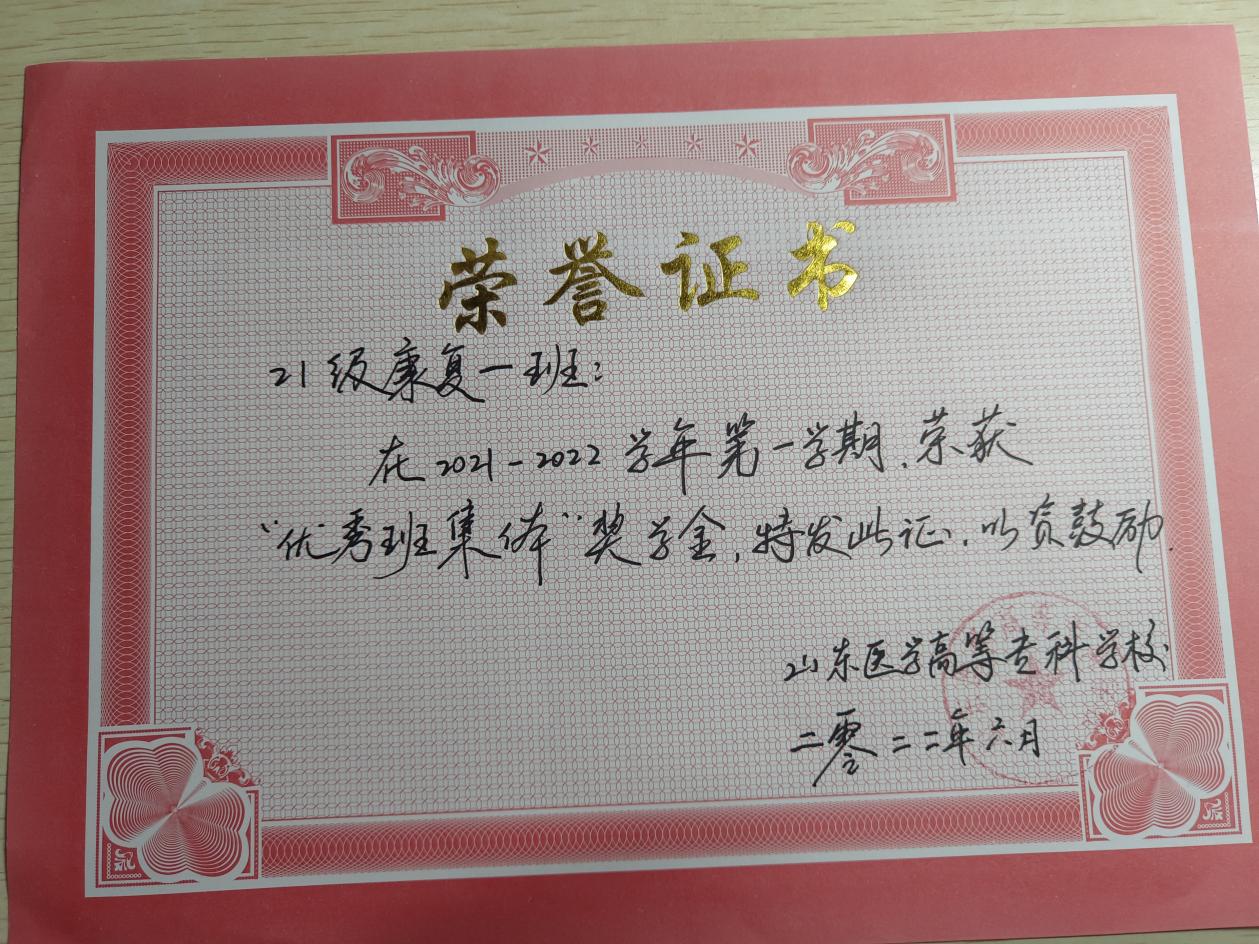 荣誉证书
21级康复一班：
在2021-2022学年第一学期，荣获
“优秀班集体”奖学金，特发此证，以资鼓励。
山东医学高等专科学校
二零二二年六月